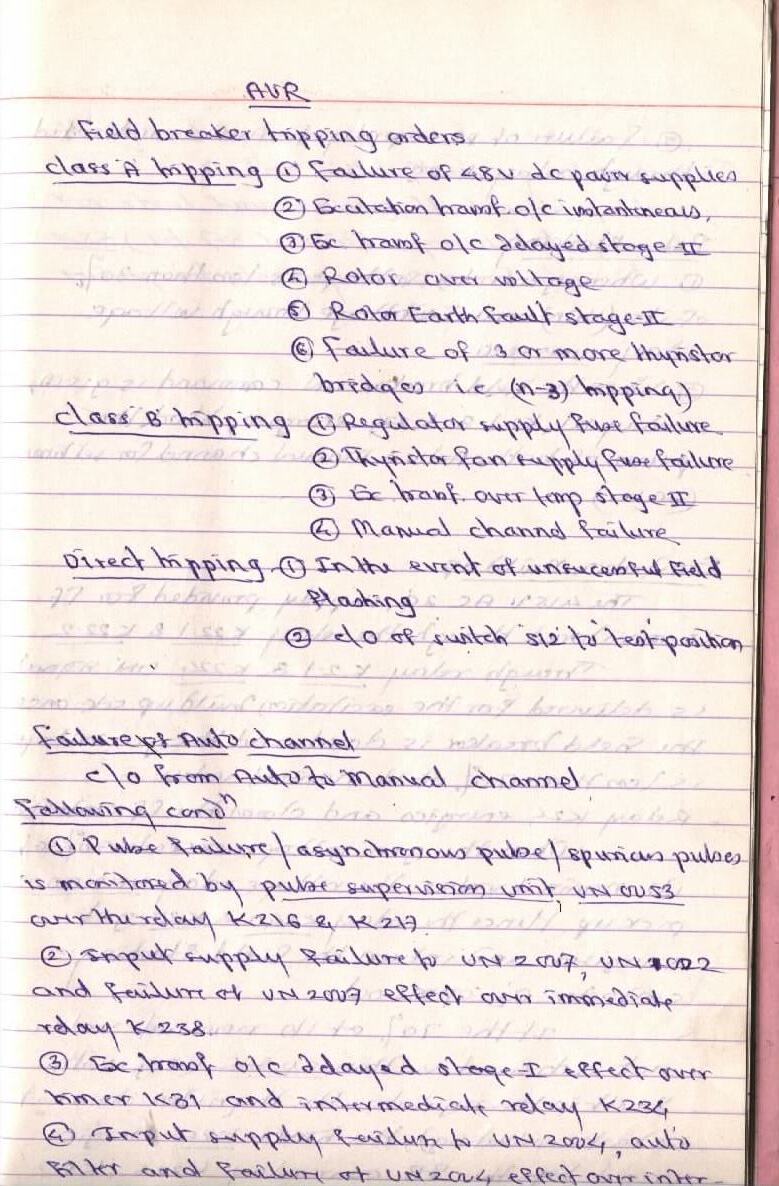 AVR
Field breaker tripping orders
class A tripping ① Failure of 48V dc power supplies
② Excitation transf. o/c instantaneous,
③ Ex transf o/c delayed stage II
④ Rotor over voltage
⑤ Rotor Earth fault stage-II
⑥ Failure of 3 or more thyristor
bridges i.e (n-3) tripping)
class B tripping ① Regulator supply fuse failure
② Thyristor fan supply fuse failure
③ Ex transf. over temp stage II
④ Manual channel failure
Direct tripping ① In the event of unsucessful Field
flashing
② c/o of switch S12 to 'test' position
Failure of Auto channel
c/o from Auto to Manual channel
Following condn
① Pulse failure / asynchronous pulse / spurious pulses
is monitored by pulse supervision unit, UN 0053
over the relay K216 & K217.
② Input supply failure to UN 2007, UN 1022
and failure of UN 2007 effect over immediate
relay K238.
③ Ex. transf o/c delayed stage-I effect over
timer K31 and intermediate relay K234
④ Input supply failure to UN 2004, auto
filter and failure of UN 2004 effect over inter-